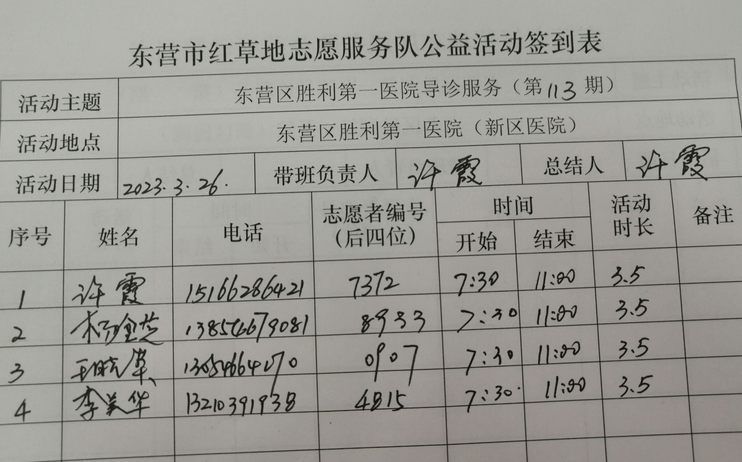 东营市红草地志愿服务队公益活动签到表
活动主题 东营区胜利第一医院导诊服务（第113期）
活动地点 东营区胜利第一医院（新区医院）
活动日期 2023.3.26. 带班负责人 许霞 总结人 许霞
序号 姓名 电话 志愿者编号（后四位） 时间 开始 结束 活动时长 备注
1 许霞 15166286421 7372 7:30 11:00 3.5
2 8933 7:30 11:00 3.5
3 0907 7:30 11:00 3.5
4 李美华 13210391938 4815 7:30 11:00 3.5